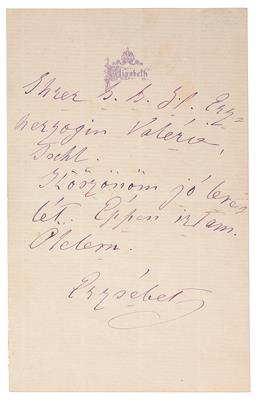 Elizabeth
Ihrer k. k. H. Erz=
herzogin Valérie,
Ischl.
Köszönöm jó leve=
lét. Éppen irtam.
Ölelem.
Erzsébet